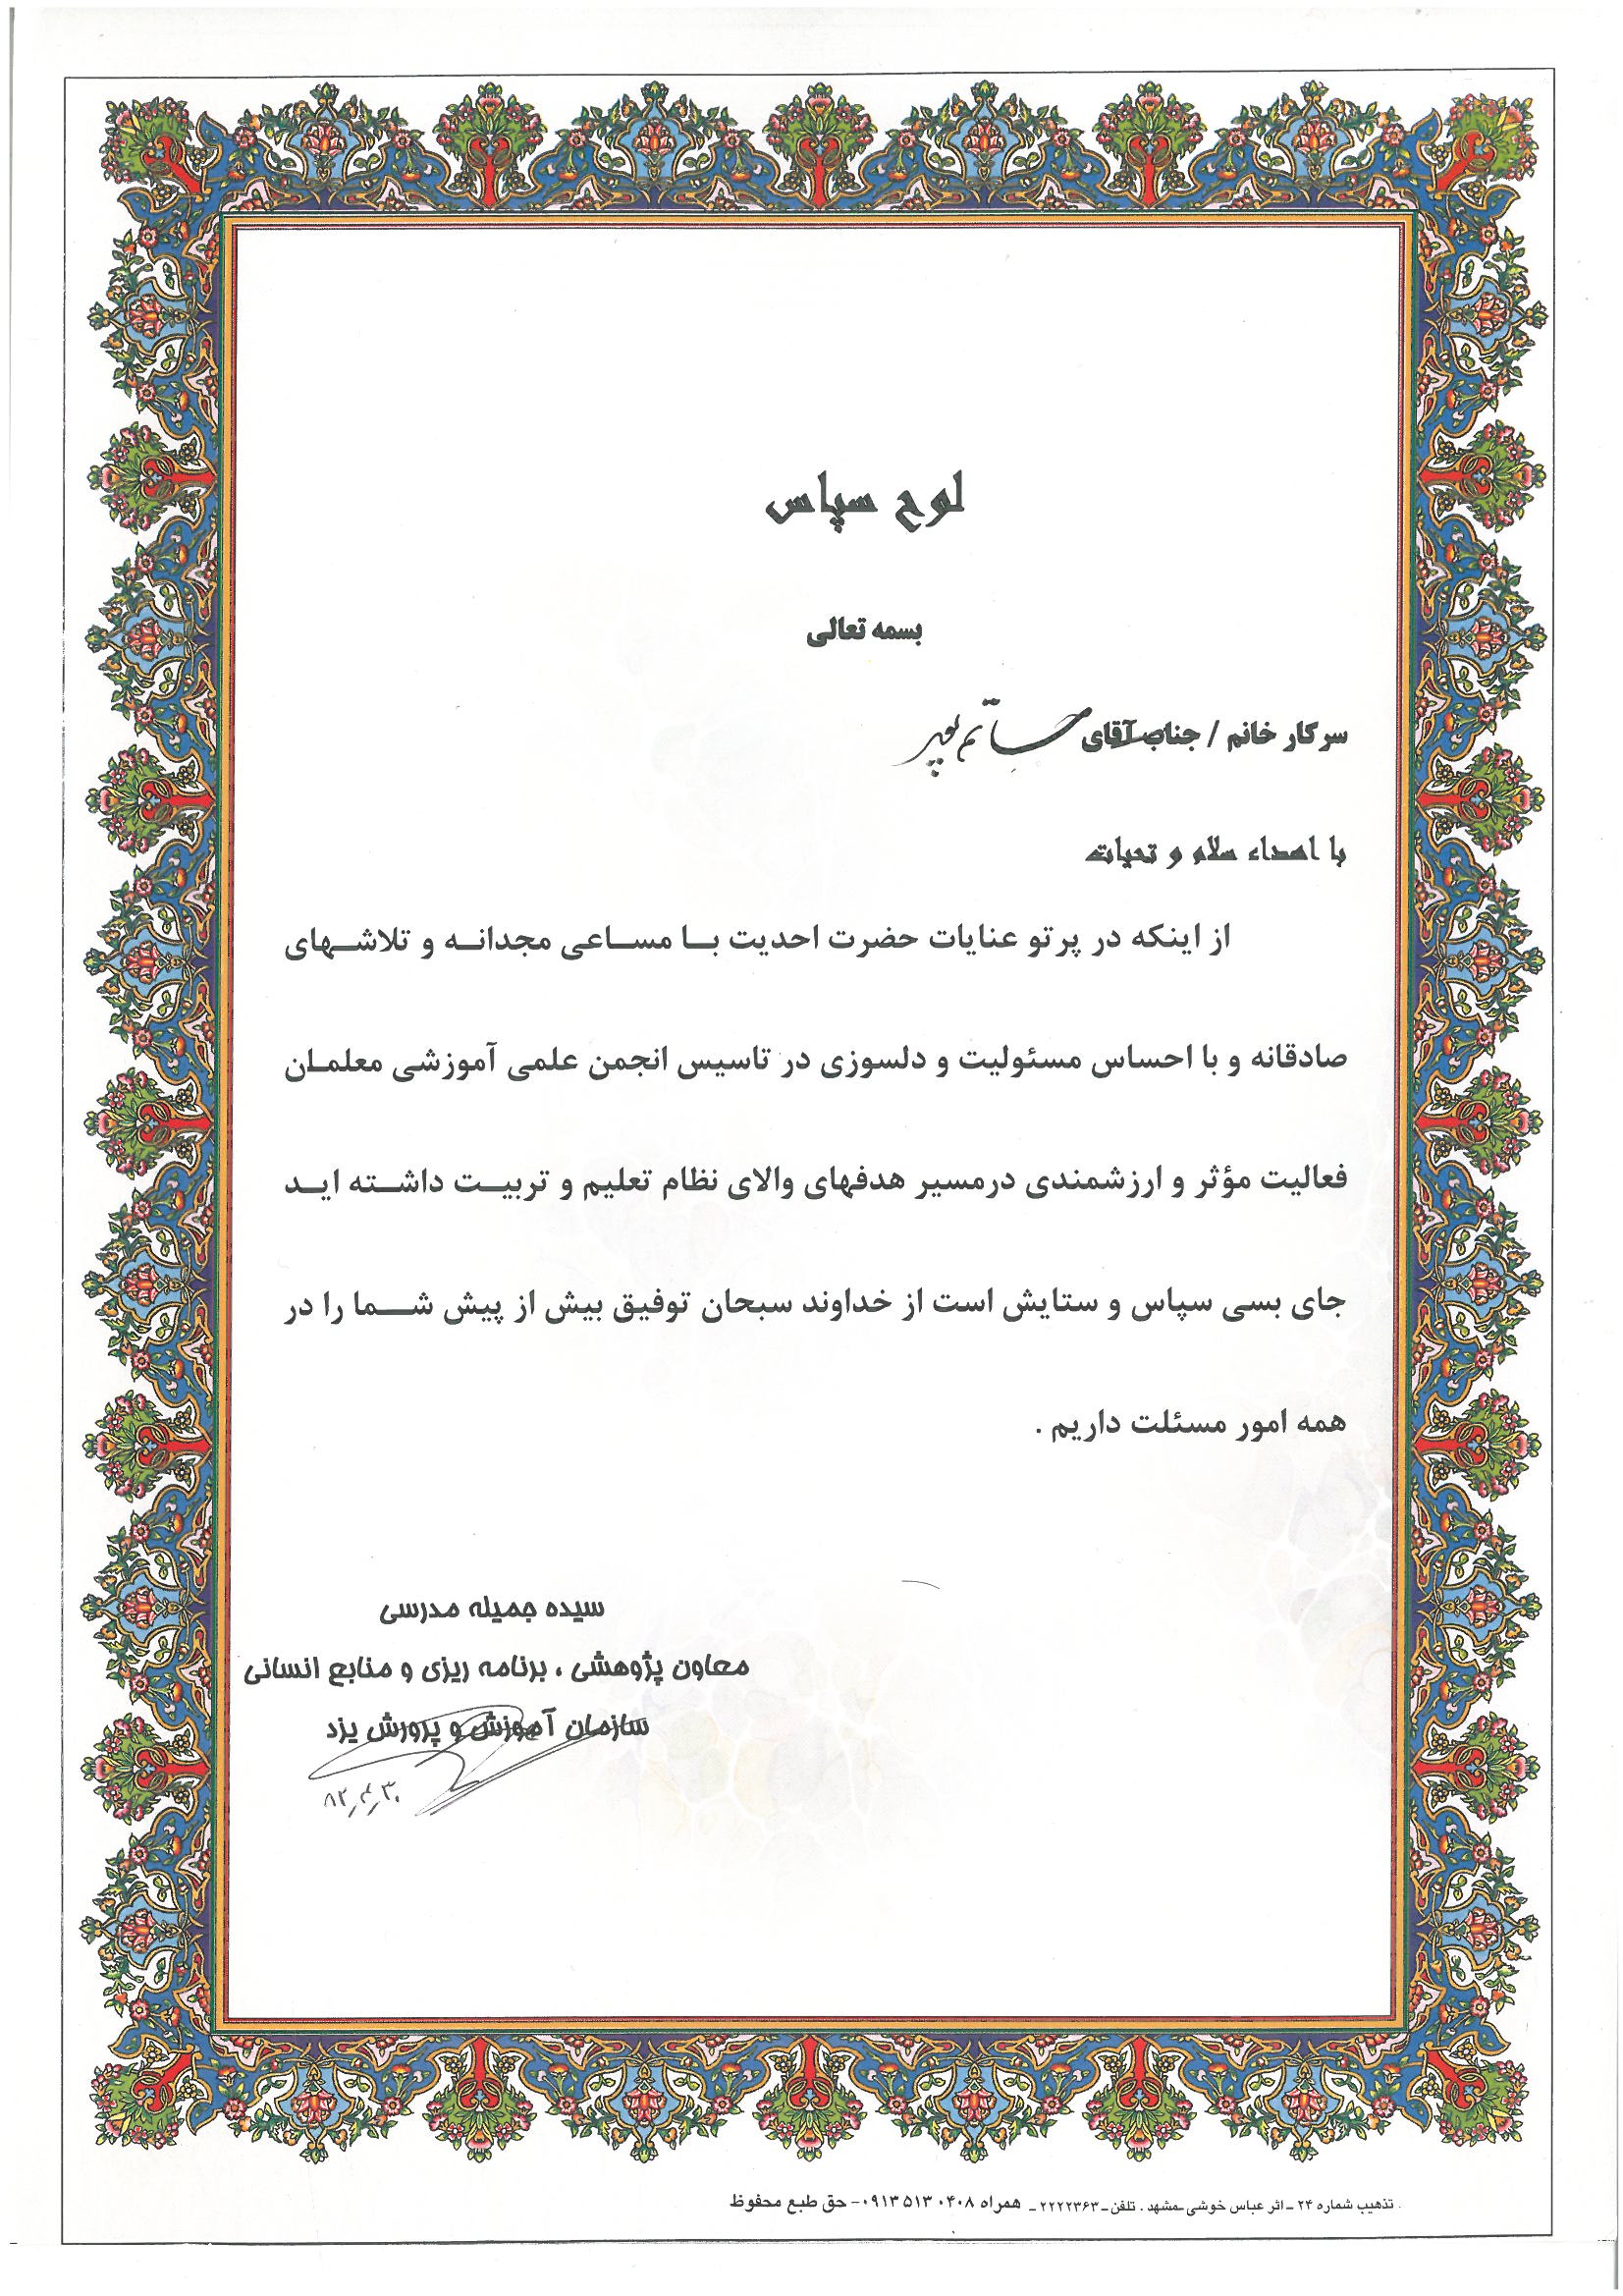 لوح سپاس
بسمه تعالی
سرکار خانم / جناب آقای حاتم پور
با اهداء سلام و تحیات
از اینکه در پرتو عنایات حضرت احدیت با مساعی مجدانه و تلاشهای
صادقانه و با احساس مسئولیت و دلسوزی در تاسیس انجمن علمی آموزشی معلمان
فعالیت مؤثر و ارزشمندی درمسیر هدفهای والای نظام تعلیم و تربیت داشته اید
جای بسی سپاس و ستایش است از خداوند سبحان توفیق بیش از پیش شما را در
همه امور مسئلت داریم .
سیده جمیله مدرسی
معاون پژوهشی ، برنامه ریزی و منابع انسانی
سازمان آموزش و پرورش یزد
۸۲٫۴٫۳۰
تذهیب شماره ۲۴ ـ اثر عباس خوشی ـ مشهد . تلفن ـ ۲۲۲۲۳۶۳ ـ همراه ۰۴۰۸ ۵۱۳ ۰۹۱۳ - حق طبع محفوظ